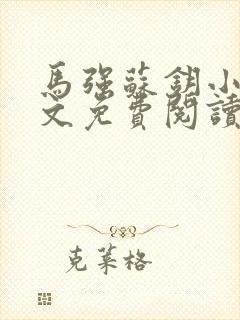 馬强蘇鈅小
文免費閱讀
克萊格